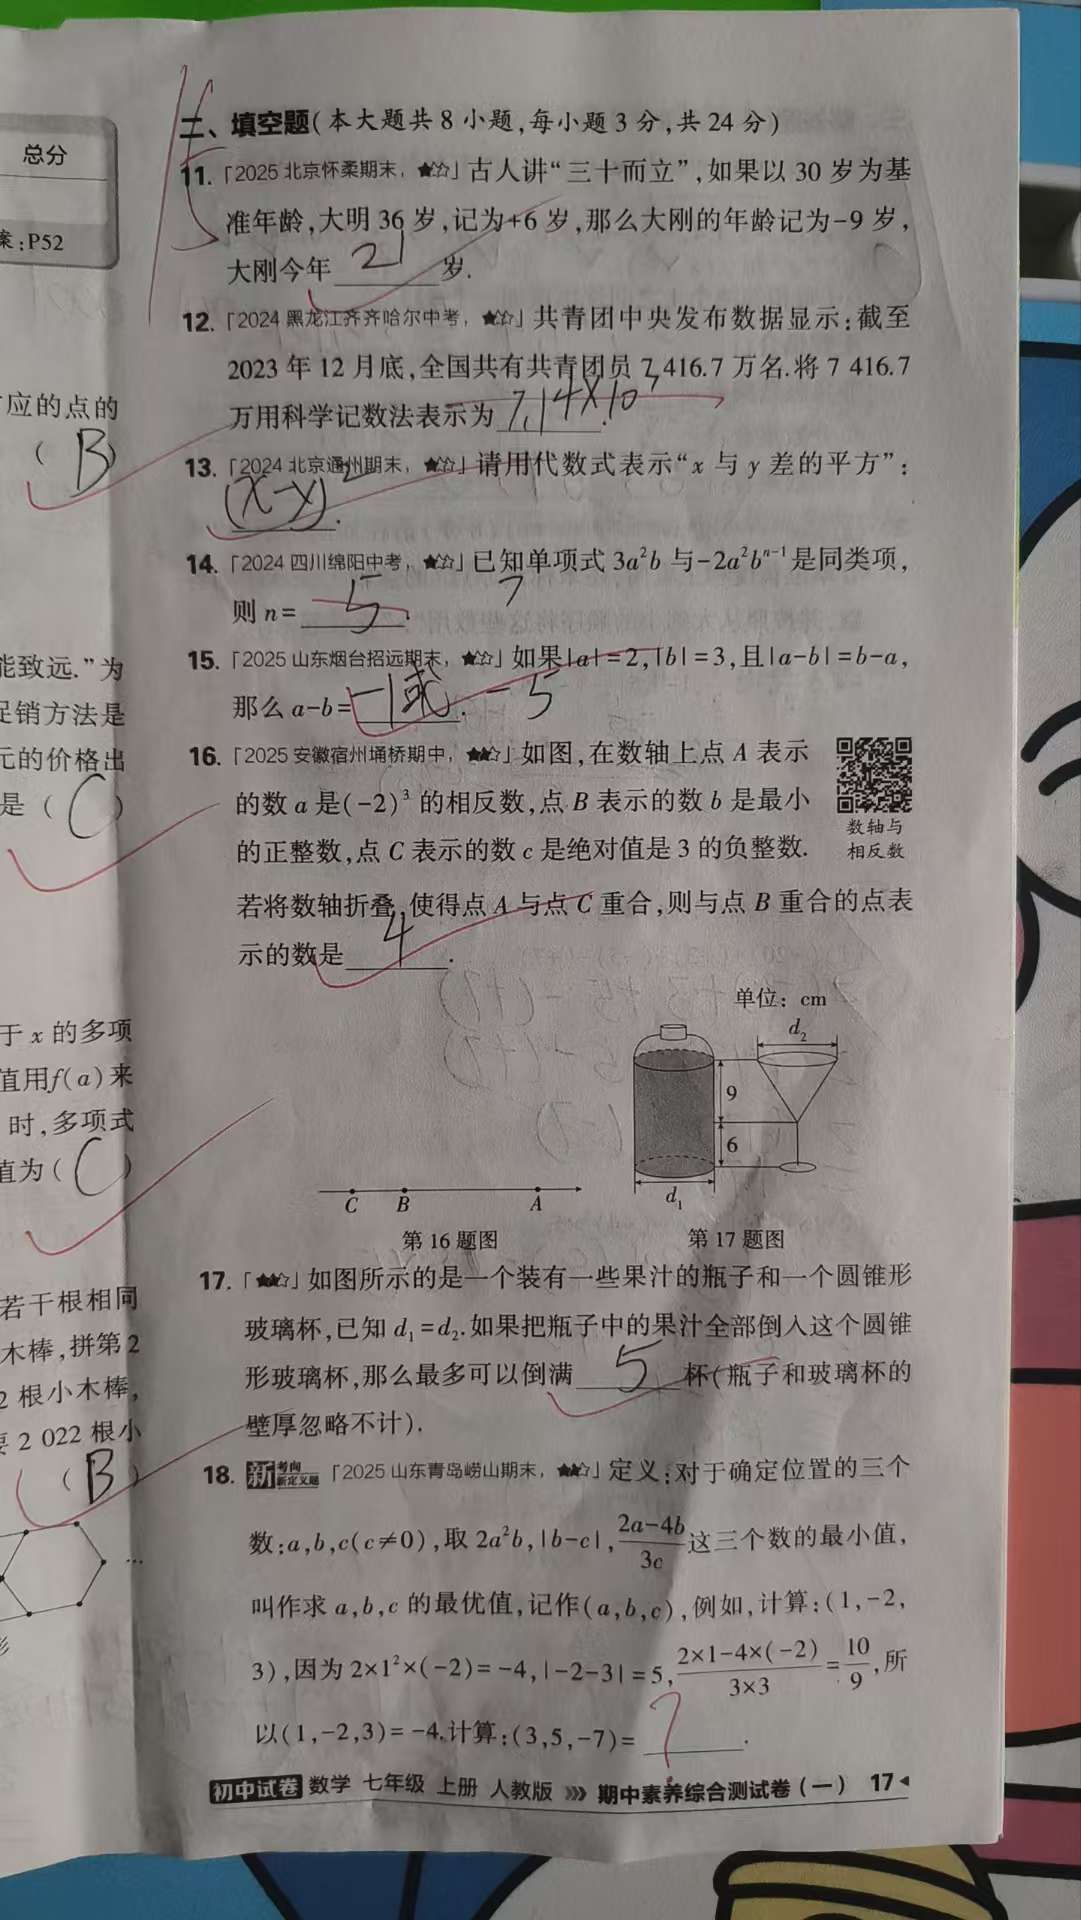 总分
案:P52
应的点的
( B )
能致远.”为
促销方法是
元的价格出
是 ( C )
于 x 的多项
值用f(a)来
时,多项式
值为( C )
若干根相同
木棒,拼第2
2 根小木棒,
要 2 022 根小
( B )
…
二、填空题(本大题共 8 小题,每小题 3 分,共 24 分)
11.「2025 北京怀柔期末,★☆☆」古人讲“三十而立”,如果以 30 岁为基
准年龄,大明 36 岁,记为+6 岁,那么大刚的年龄记为-9 岁,
大刚今年 21 岁.
12.「2024 黑龙江齐齐哈尔中考,★☆☆」共青团中央发布数据显示:截至
2023 年 12 月底,全国共有共青团员 7 416.7 万名.将 7 416.7
万用科学记数法表示为 7.14×10⁷.
13.「2024 北京通州期末,★☆☆」请用代数式表示“x 与 y 差的平方”:
(x-y)².
14.「2024 四川绵阳中考,★☆☆」已知单项式 3a²b 与-2a²bⁿ⁻¹是同类项,
则 n= 5 .
15.「2025 山东烟台招远期末,★☆☆」如果|a|=2,|b|=3,且|a-b|=b-a,
那么 a-b= -1或 . -5
16.「2025 安徽宿州埇桥期中,★★☆」如图,在数轴上点 A 表示
的数 a 是(-2)³ 的相反数,点 B 表示的数 b 是最小
的正整数,点 C 表示的数 c 是绝对值是 3 的负整数.
数轴与
相反数
若将数轴折叠,使得点 A 与点 C 重合,则与点 B 重合的点表
示的数是 4 .
单位:cm
d₂
9
6
d₁
C B A
第 16 题图 第 17 题图
17.「★★☆」如图所示的是一个装有一些果汁的瓶子和一个圆锥形
玻璃杯,已知 d₁=d₂.如果把瓶子中的果汁全部倒入这个圆锥
形玻璃杯,那么最多可以倒满 5 杯(瓶子和玻璃杯的
壁厚忽略不计).
18. 新考向 新定义题「2025 山东青岛崂山期末,★★☆」定义:对于确定位置的三个
数:a,b,c(c≠0),取 2a²b,|b-c|,(2a-4b)/3c 这三个数的最小值,
叫作求 a,b,c 的最优值,记作(a,b,c),例如,计算:(1,-2,
3),因为 2×1²×(-2)=-4,|-2-3|=5,(2×1-4×(-2))/(3×3)=10/9,所
以(1,-2,3)=-4.计算:(3,5,-7)= ? .
初中试卷 数学 七年级 上册 人教版 >>> 期中素养综合测试卷(一) 17